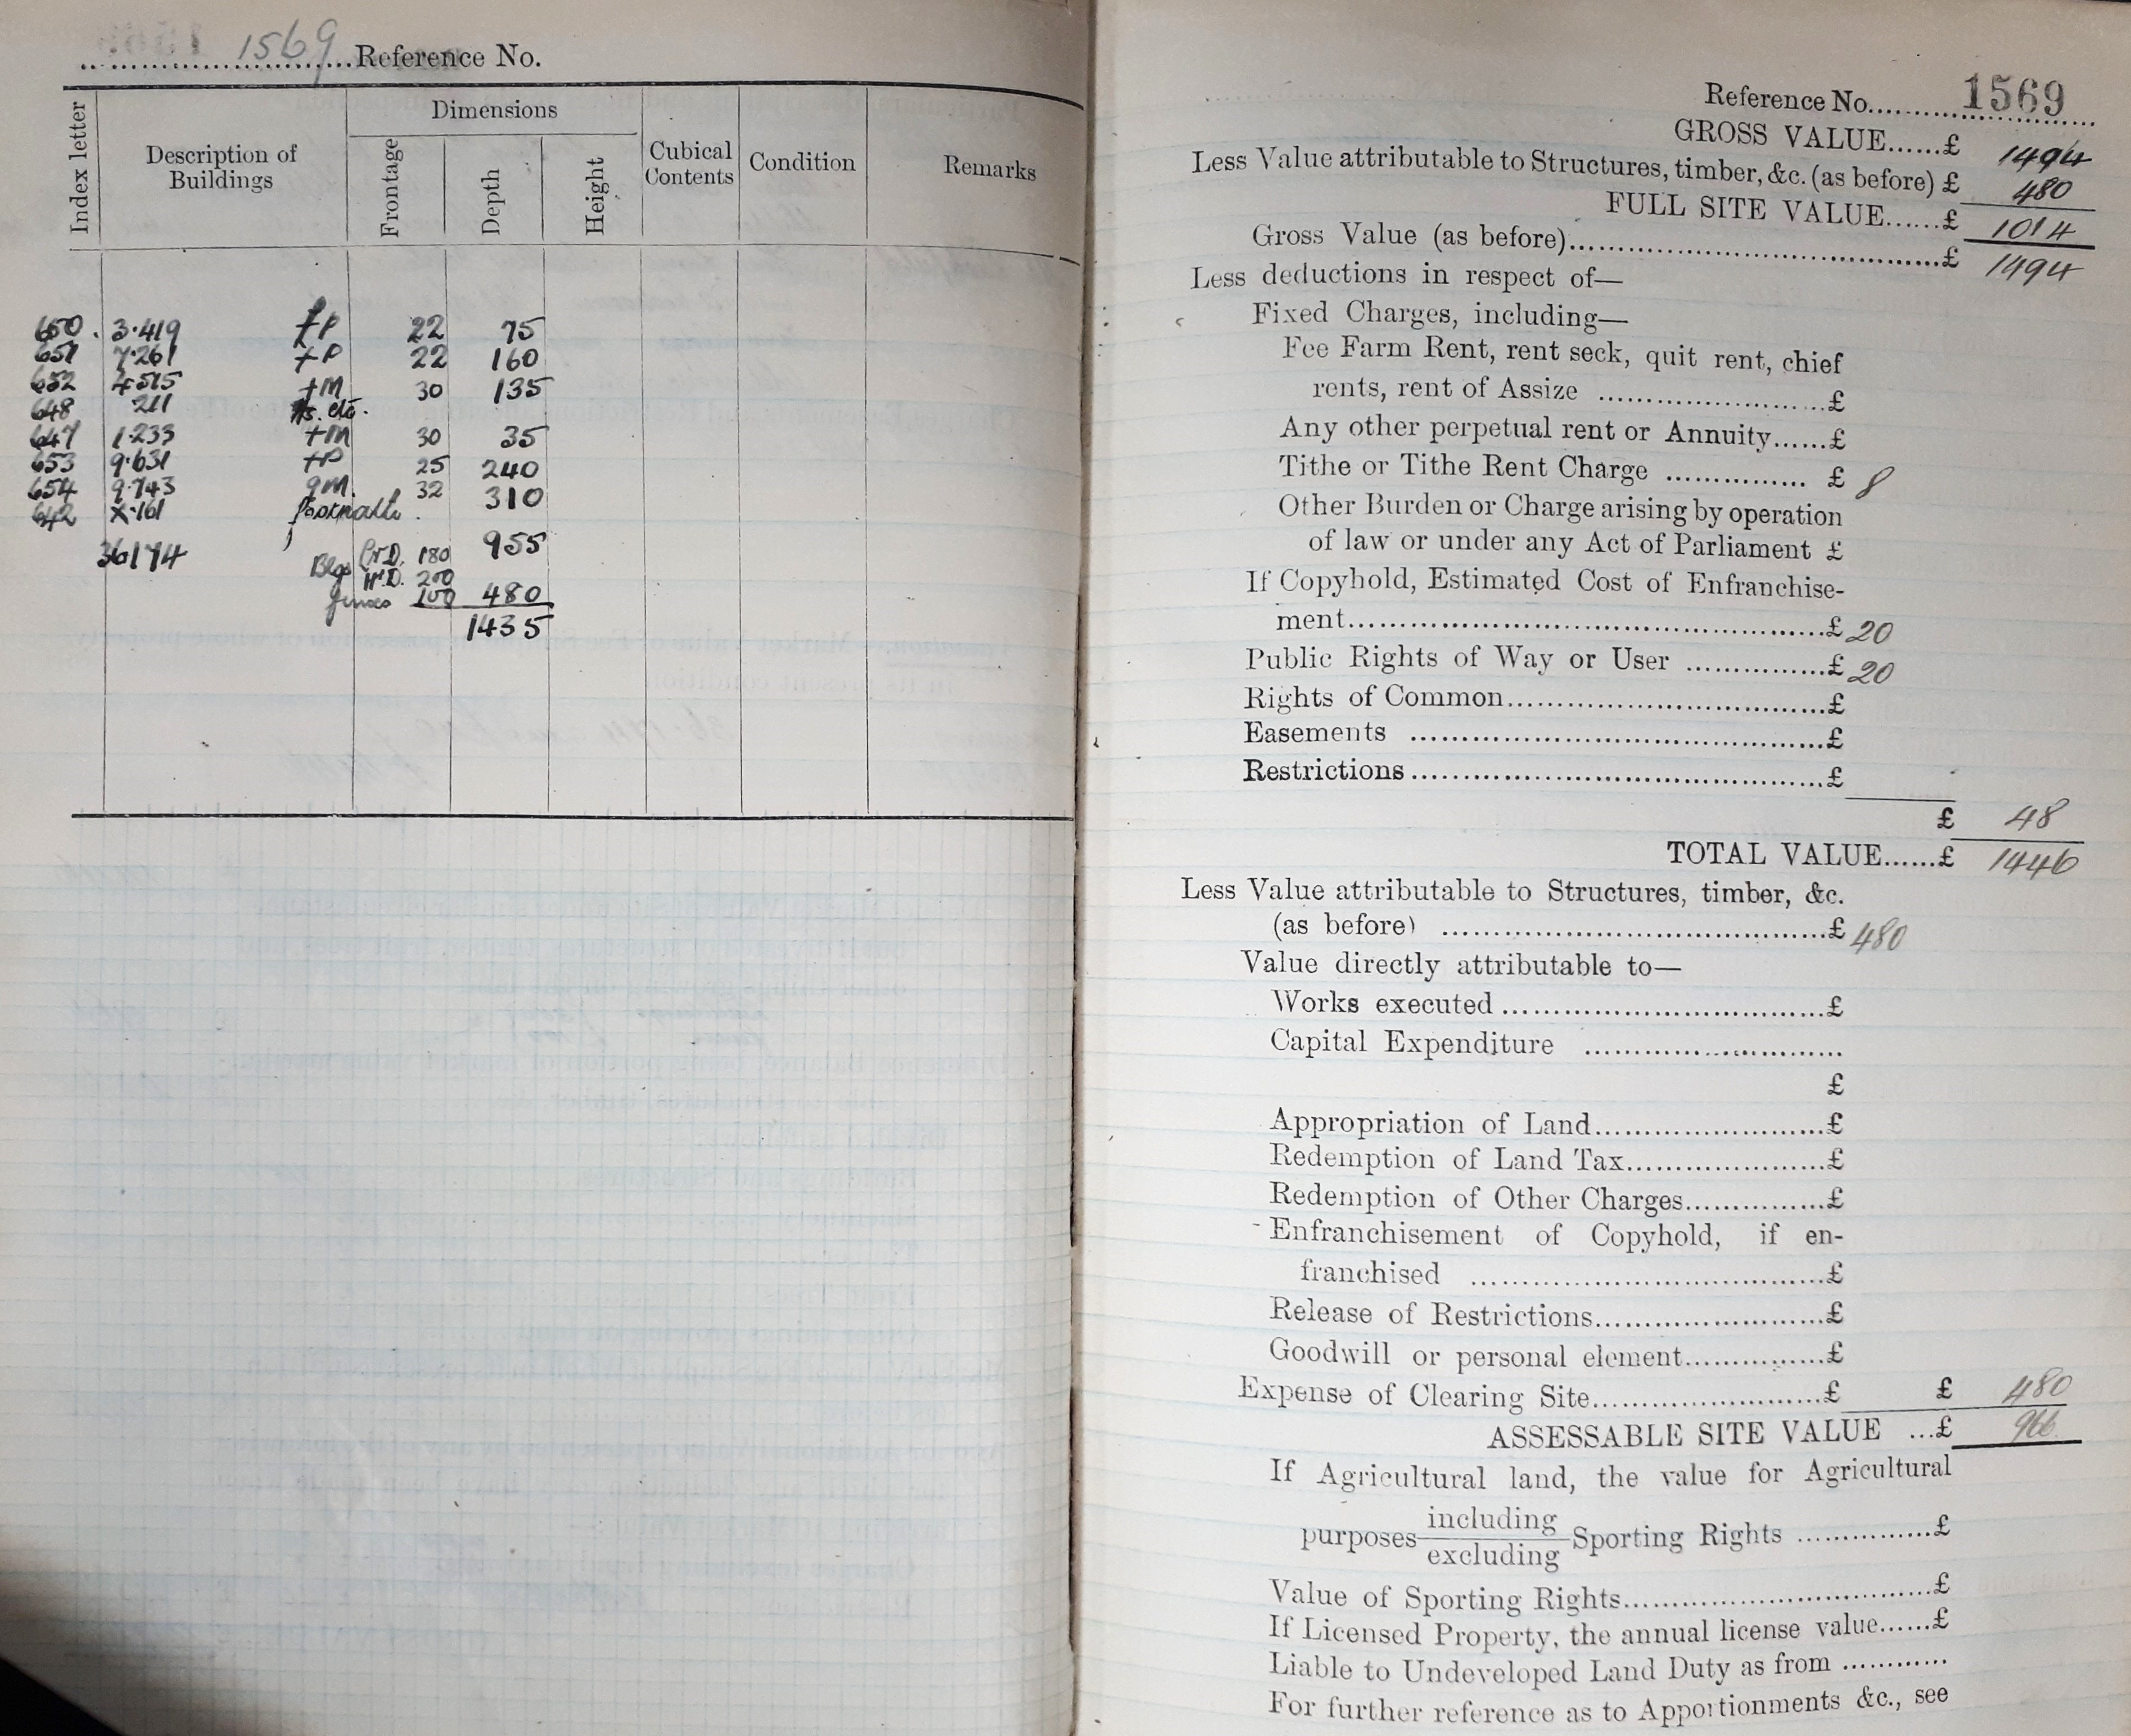 1569 Reference No.
Index letter
Description of Buildings
Dimensions
Frontage
Depth
Height
Cubical Contents
Condition
Remarks
650 . 3.419 fP 22 75
651 7.261 +P 22 160
652 4.515 +M 30 135
648 .211 Hs. etc.
647 1.233 +M 30 35
653 9.631 +P 25 240
654 9.743 gM. 32 310
642 X.161 footpath .
36174 955
Blgs 180
H.D. 200
fences 100 480
1435
Reference No. 1569
GROSS VALUE......£ 1494
Less Value attributable to Structures, timber, &c. (as before) £ 480
FULL SITE VALUE......£ 1014
Gross Value (as before)......£ 1494
Less deductions in respect of—
Fixed Charges, including—
Fee Farm Rent, rent seck, quit rent, chief
rents, rent of Assize ......£
Any other perpetual rent or Annuity......£
Tithe or Tithe Rent Charge ...... £ 8
Other Burden or Charge arising by operation
of law or under any Act of Parliament £
If Copyhold, Estimated Cost of Enfranchise-
ment......£ 20
Public Rights of Way or User ......£ 20
Rights of Common......£
Easements ......£
Restrictions......£
£ 48
TOTAL VALUE......£ 1446
Less Value attributable to Structures, timber, &c.
(as before) ......£ 480
Value directly attributable to—
Works executed ......£
Capital Expenditure ......
£
Appropriation of Land......£
Redemption of Land Tax......£
Redemption of Other Charges......£
Enfranchisement of Copyhold, if en-
franchised ......£
Release of Restrictions......£
Goodwill or personal element......£
Expense of Clearing Site......£ £ 480
ASSESSABLE SITE VALUE ...£ 966
If Agricultural land, the value for Agricultural
including
purposes Sporting Rights ......£
excluding
Value of Sporting Rights......£
If Licensed Property, the annual license value......£
Liable to Undeveloped Land Duty as from ............
For further reference as to Apportionments &c., see